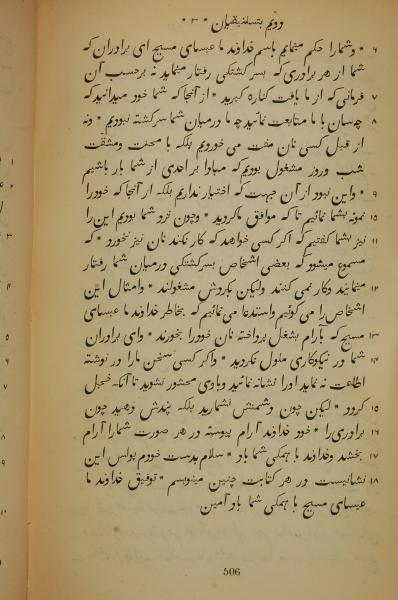 دویم بتسلنیقیان * ۳ *
۶ * وشمارا حکم مینمایم باسم خداوند ما عیسای مسیح ای برادران که
شما از هر برادری که بسرگشتگی رفتار مینماید نه برحسب آن
۷ فرمانی که از ما یافت کناره گیرید * از آنجا که شما خود میدانید که
۸ چه‌سان با ما متابعت نمائید چه ما درمیان شما سرگشته نبودیم * ونه
از قبل کسی نان مفت می خوردیم بلکه با محنت ومشقّت
شب وروز مشغول بودیم که مبادا بر احدی از شما بار باشیم
۹ * واین نبود از آن جهت که اختیار نداریم بلکه از آنجا که خودرا
۱۰ نمونه بشما نمائیم تا که موافق ما گردید * وچون نزد شما بودیم این را
۱۱ نیز بشما گفتیم که اگر کسی نخواهد که کار بکند نان نیز نخورد * که
مسموع میشود که بعضی اشخاص بسرگشتگی درمیان شما رفتار
۱۲ مینمایند وکار نمی کنند ولیکن بگردش مشغولند * وامثال این
اشخاص را می گوئیم واستدعا می نمائیم که بخاطر خداوند ما عیسای
۱۳ مسیح که بآرام بشغل پرداخته نان خودرا بخورند * وای برادران
۱۴ شما در نیکوکاری ملول نگردید * واگر کسی سخن مارا در نوشته
اطاعت نه نماید اورا نشانه نمائید وباوی محشور نشوید تا آنکه خجل
۱۵ گردد * لیکن چون دشمنش نشمارید بلکه پندش دهید چون
۱۶ برادری را * خود خداوند آرام پیوسته در هر صورت شمارا آرام
۱۷ بخشد وخداوند با همگی شما باد * سلام بدست خودم پولس این
۱۸ نشانیست در هر کتابت چنین مینویسم * توفیق خداوند ما
عیسای مسیح با همگی شما باد آمین
506